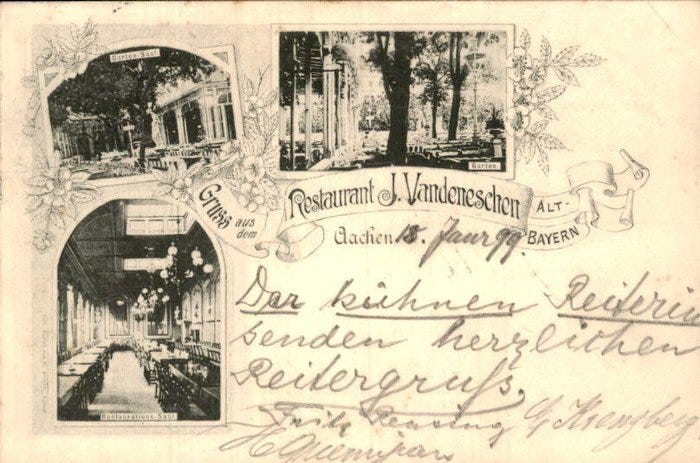 Garten-Saal.
Garten.
Gruss aus dem
Restaurant J. Vandeneschen
ALT-BAYERN
Aachen 18. Janr 99
Der kühnen Reiterin
senden herzlichen
Reitergruß.
Fritz
Restaurations-Saal